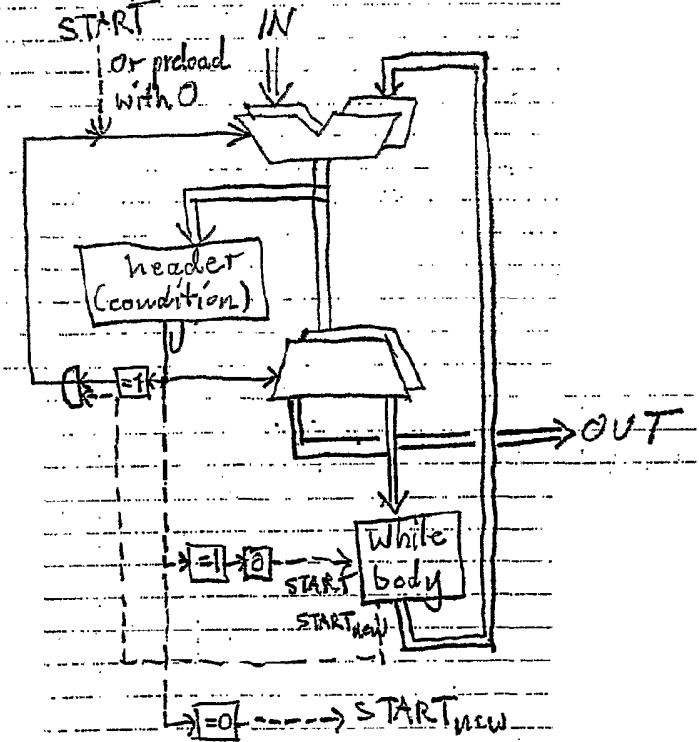 START
or preload
with 0
IN
header
(condition)
=1
OUT
while
body
=1
0
START
STARTnew
=0
STARTnew